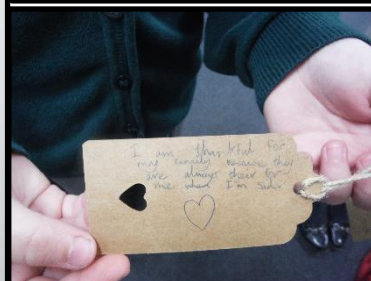 I am thankful for
my family because they
are always their for
me when I'm sad.